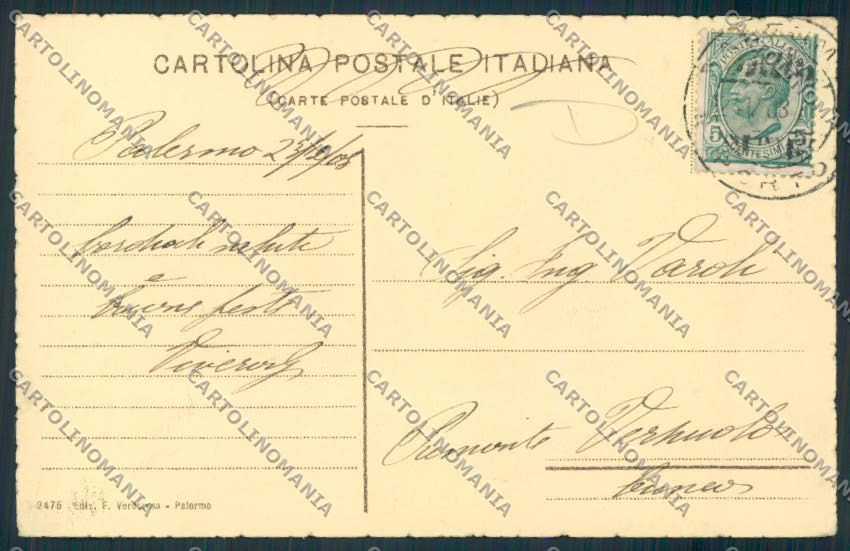 CARTOLINA POSTALE ITALIANA
(CARTE POSTALE D'ITALIE)
Palermo 23/12/08
Cordiali saluti
e
buone feste
Sig. Ing. Varoli
Piemonte Verzuolo
Cuneo
POSTE ITALIANE
5
CENTESIMI
2475 Ediz. F. Verderosa - Palermo
CARTOLINOMANIA